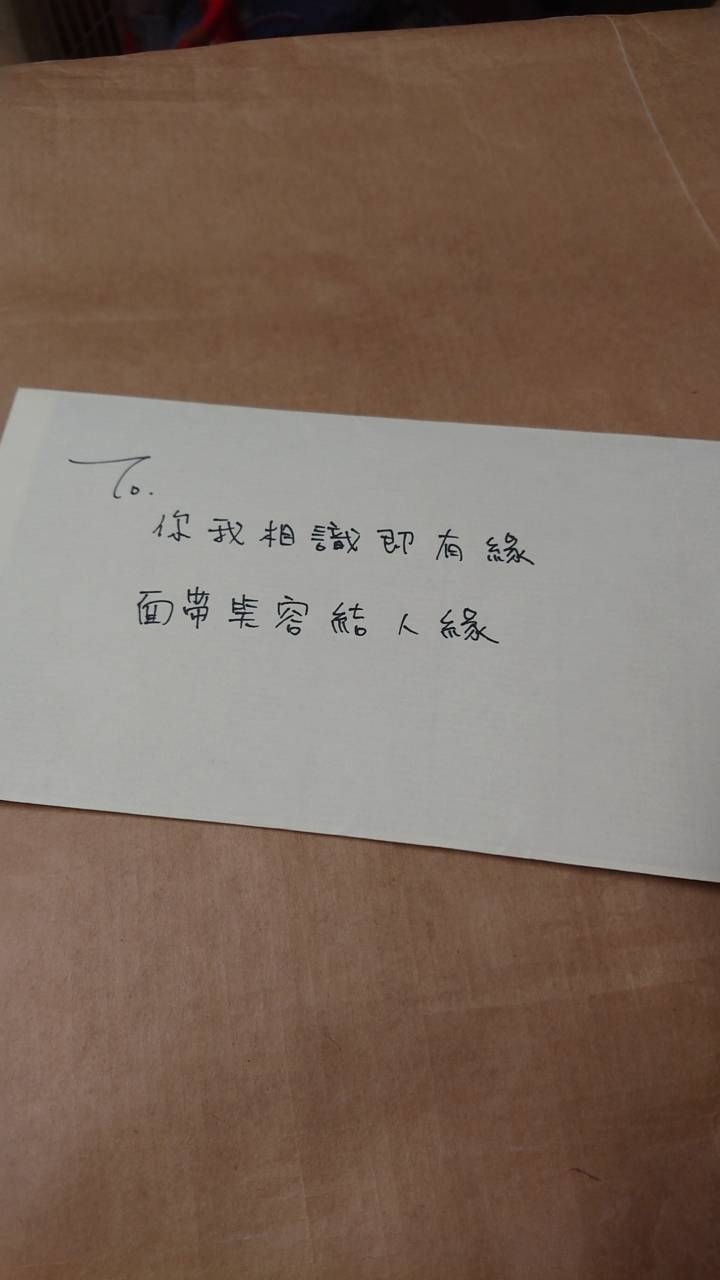 To.
你我相識即有緣
面帶笑容結人緣